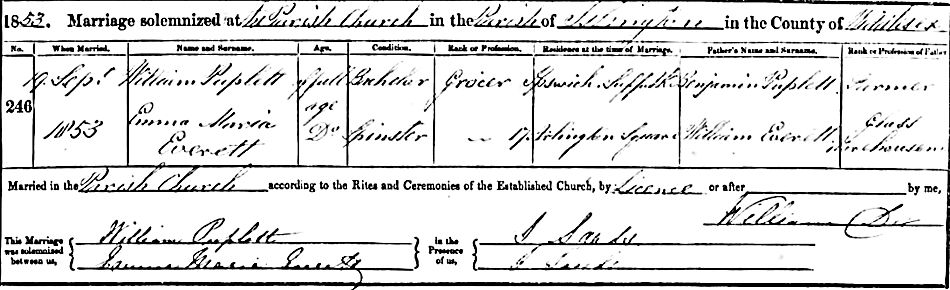 1853. Marriage solemnized at the Parish Church in the Parish of Islington in the County of Middlesex
No. When Married. Name and Surname. Age. Condition. Rank or Profession. Residence at the time of Marriage. Father's Name and Surname. Rank or Profession of Father
246 19 Sept. William Puplett of full Bachelor Grocer Ipswich Suffolk Benjamin Puplett Farmer
age
1853 Emma Maria Do Spinster — 17 Arlington Square William Everett Glass
Everett Warehouseman
Married in the Parish Church according to the Rites and Ceremonies of the Established Church, by Licence or after by me,
William
This Marriage was solemnized between us, William Puplett In the Presence of us, J Sands
Emma Maria Everett Sands